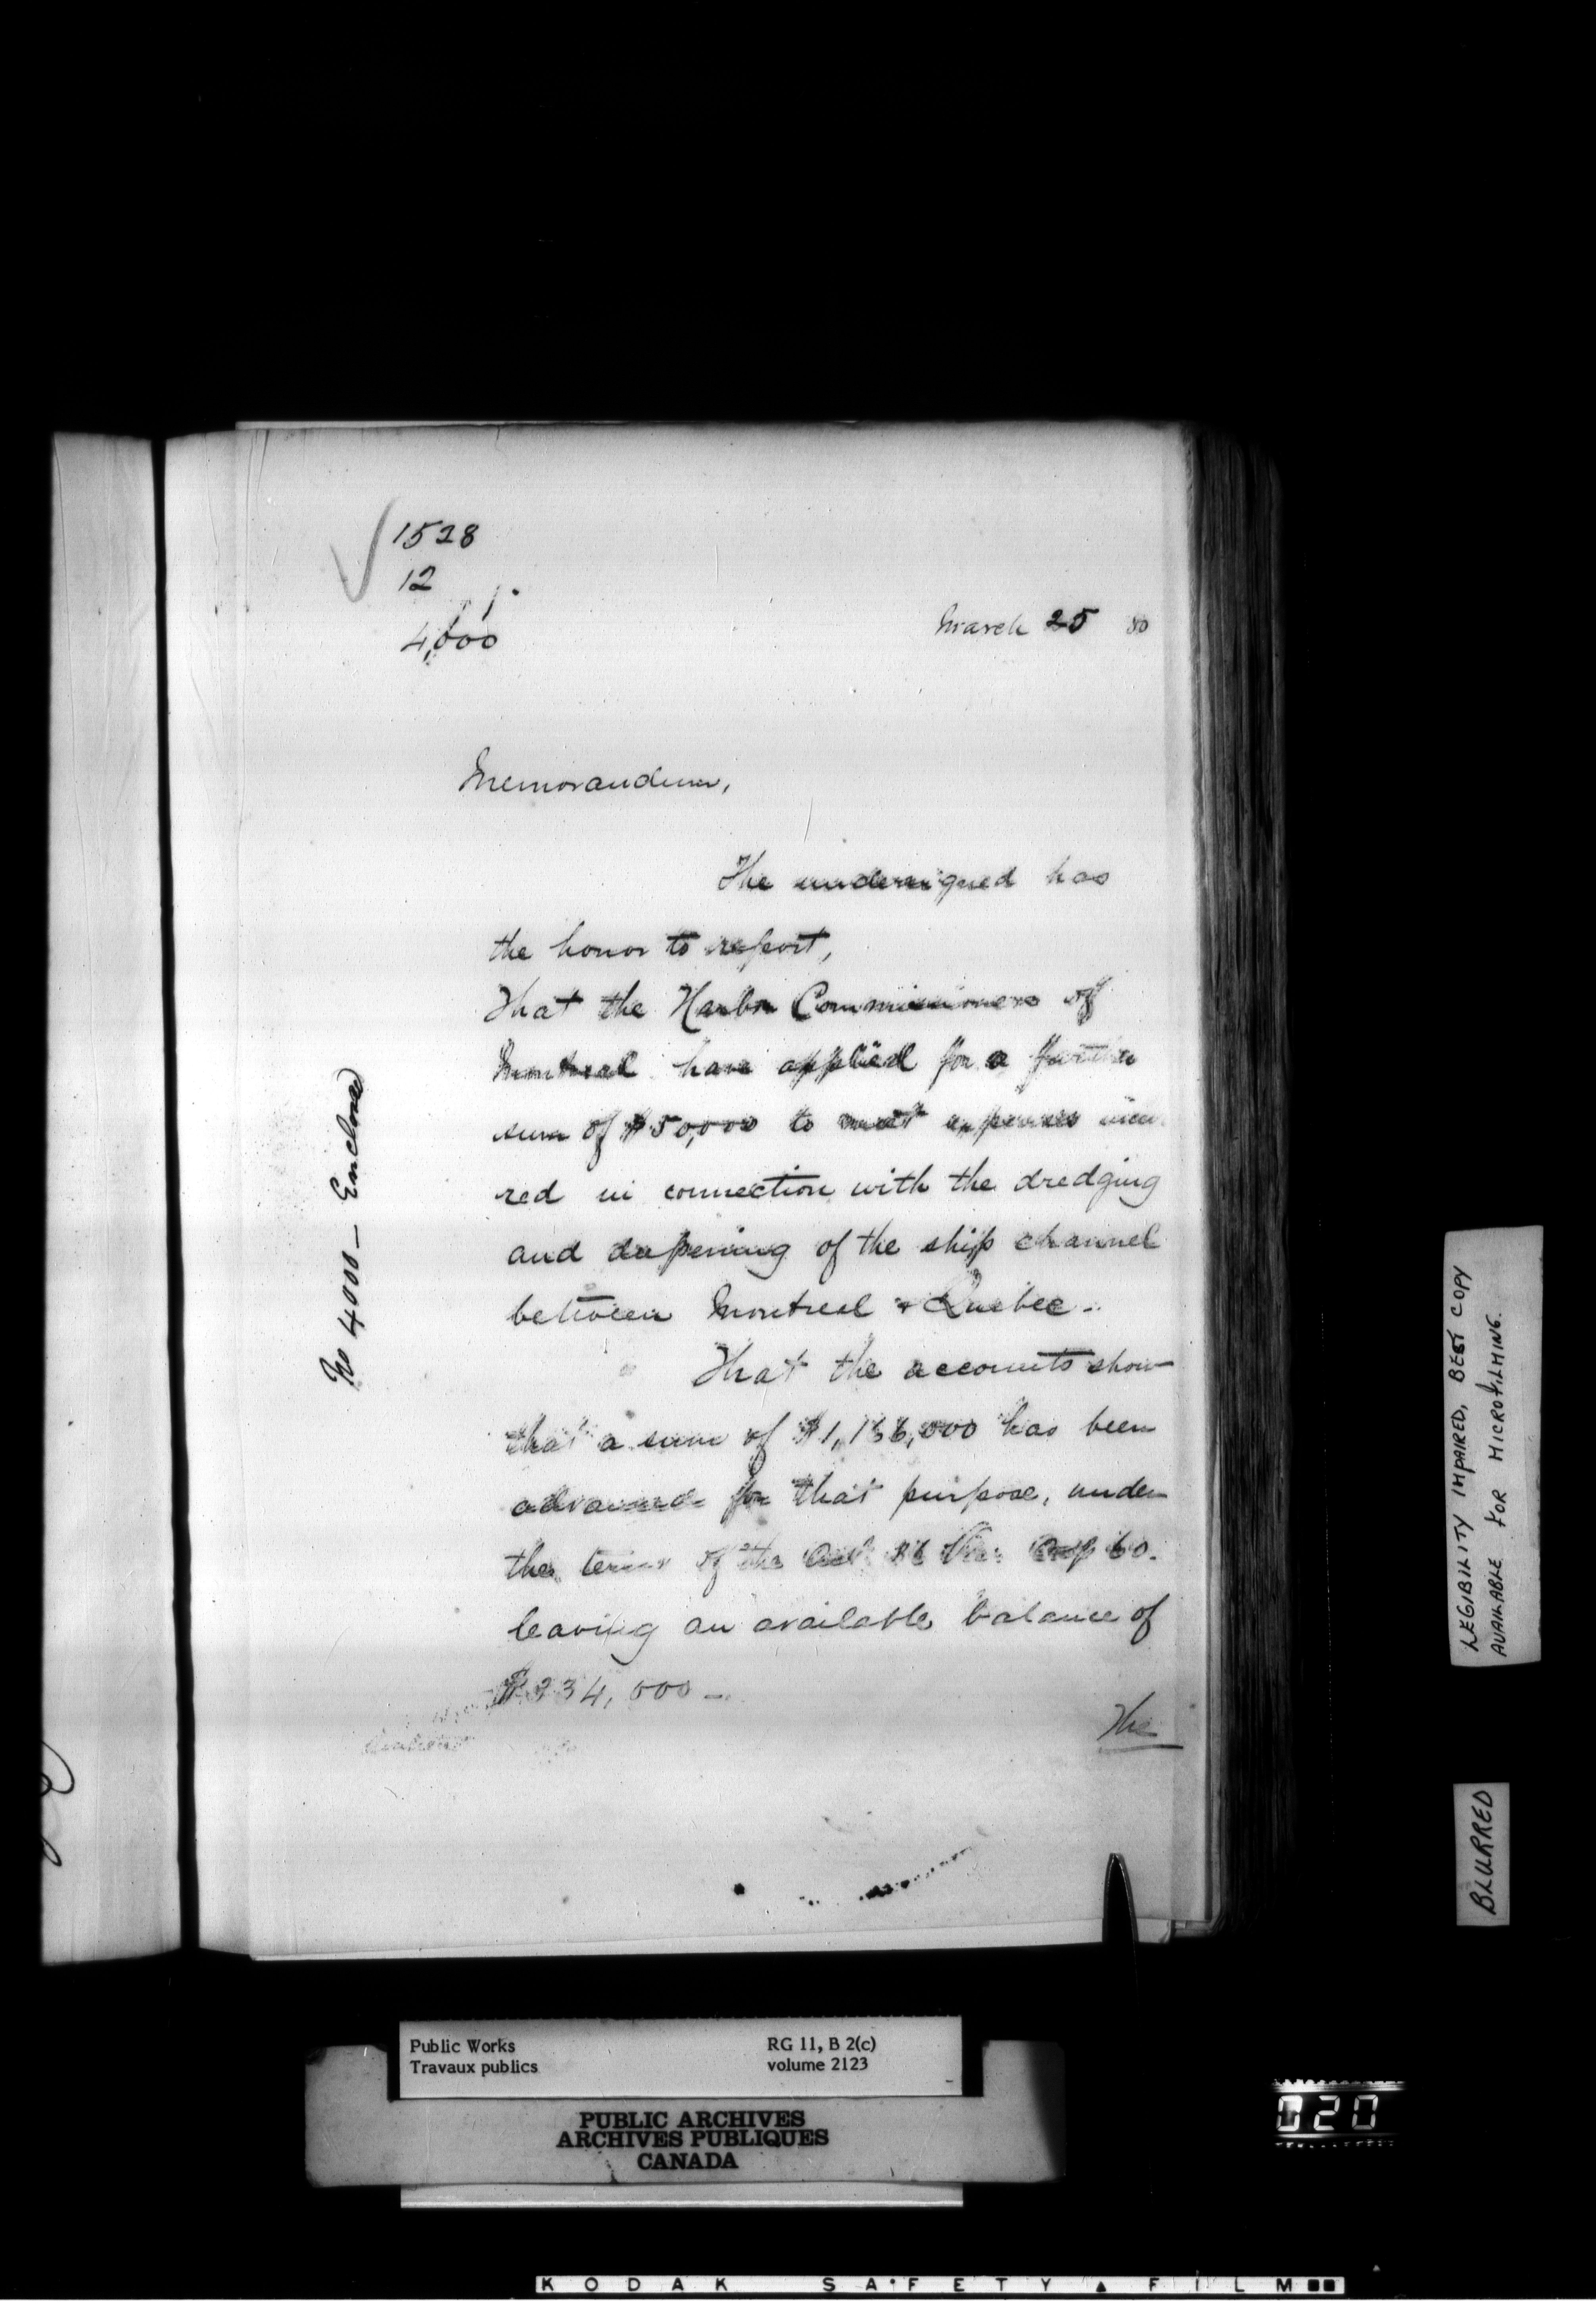 1528
12
4,000
March 25 80
Memorandum,
The undersigned has
the honor to report,
That the Harbor Commissioners of
Montreal have applied for a further
sum of $50,000 to meet expenses incur
red in connection with the dredging
and deepening of the ship channel
between Montreal & Quebec.
That the accounts show
that a sum of $1,166,000 has been
advanced for that purpose, under
the terms of the Act 36 Vic: Cap 60.
leaving an available balance of
$334,000 -
The
No 4000 - Enclosed
LEGIBILITY IMPAIRED, BEST COPY
AVAILABLE FOR MICROFILMING.
BLURRED
Public Works RG 11, B 2(c)
Travaux publics volume 2123
PUBLIC ARCHIVES
ARCHIVES PUBLIQUES
CANADA
020
KODAK SAFETY FILM